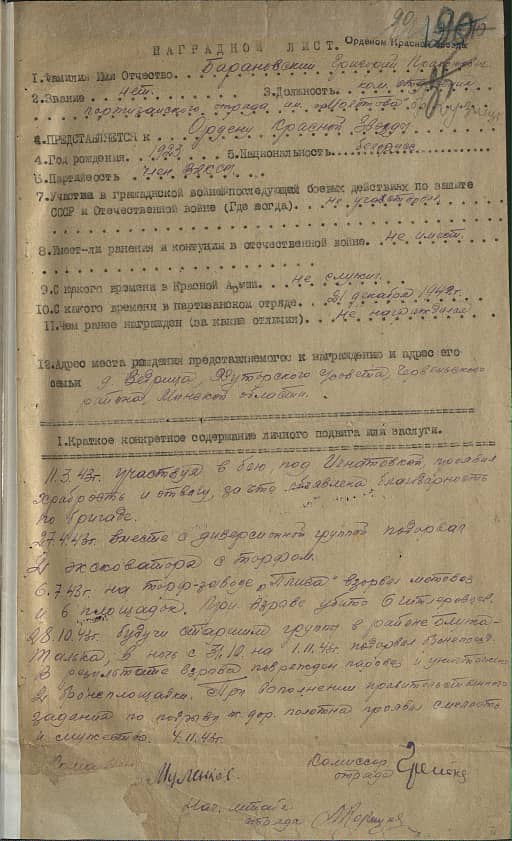 90
190
НАГРАДНОЙ ЛИСТ.
Орденом Красной Звезды
1.Фамилия Имя Отчество Барановский Григорий
2.Звание нет. 3.Должность. ком. отделения
партизанского отряда им.
4.ПРЕДСТАВЛЯЕТСЯ к Ордену Красной Звезды
4.Год рождения. 1923 5.Национальность белорус
6.Партийность член ВЛКСМ
7.Участие в гражданской войне последующей боевых действиях по защите
СССР и Отечественной войне (Где когда). не участвовал
8.Имеет-ли ранения и контузии в отечественной войне. не имеет.
9.С какого времени в Красной Армии. не служил
10.С какого времени в партизанском отряде. 21 декабря 1942г.
11.Чем ранее награжден (за какие отличия). не награждался
12.Адрес места рождения представляемого к награждению и адрес его
семьи д. Ведрица, Хуторского сровета, Червеньского
района, Минской области.
1.Краткое конкретное содержание личного подвига или заслуги.
11.3.43г. участвуя в бою, под Игнатовкой, проявил
храбрость и отвагу, за что объявлена благодарность
по бригаде.
27.4.43г. вместе с диверсионной группой подорвал
2 эксковатора с торфом.
6.7.43г. на торф-заводе взорвал мотовоз
и 6 площадок. При взрыве убито 6 гитлеровцев.
28.10.43г. будучи старшим группы в районе
Талька, в ночь с 31.10. на 1.11.43г. подорвал бронепоезд.
В результате взрыва поврежден паровоз и уничтожено
2 бронеплощадки. При выполнении правительственного
задания по подрыву ж.дор. полотна проявил смелость
и мужество. 4.11.43г.
Комиссар
отряда
Нач. штаба
отряда